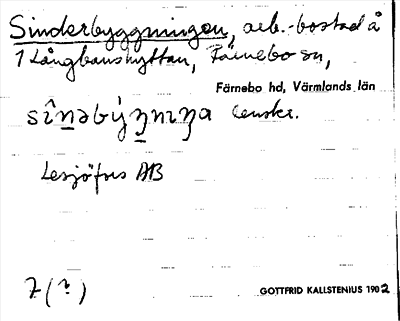 Sinderbyggningen, arb.-bostad å
1 Långbanshyttan, Färnebo sn,
Färnebo hd, Värmlands län
Lesjöfors AB
7 (2)
GOTTFRID KALLSTENIUS 1902